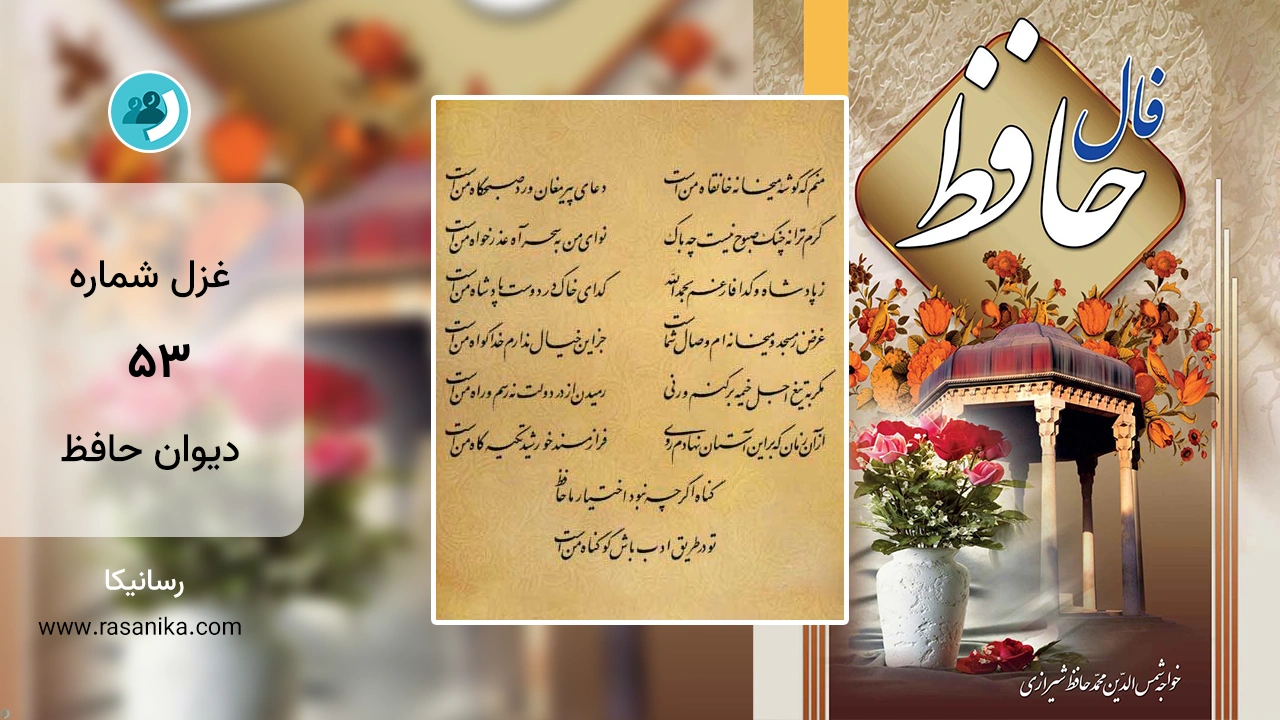 فال
حافظ
غزل شماره
۵۳
دیوان حافظ
رسانیکا
www.rasanika.com
منم که گوشهٔ میخانه خانقاه من است دعای پیر مغان ورد صبحگاه من است
گرم ترانهٔ چنگ صبوح نیست چه باک نوای من به سحر آه عذرخواه من است
ز پادشاه و گدا فارغم بحمدالله گدای خاک در دوست پادشاه من است
غرض ز مسجد و میخانه‌ام وصال شماست جز این خیال ندارم خدا گواه من است
مگر به تیغ اجل خیمه برکنم ورنی رمیدن از در دولت نه رسم و راه من است
از آن زمان که بر این آستان نهادم روی فراز مسند خورشید تکیه‌گاه من است
گناه اگر چه نبود اختیار ما حافظ
تو در طریق ادب باش گو گناه من است
خواجه شمس الدّین محمّد حافظ شیرازی